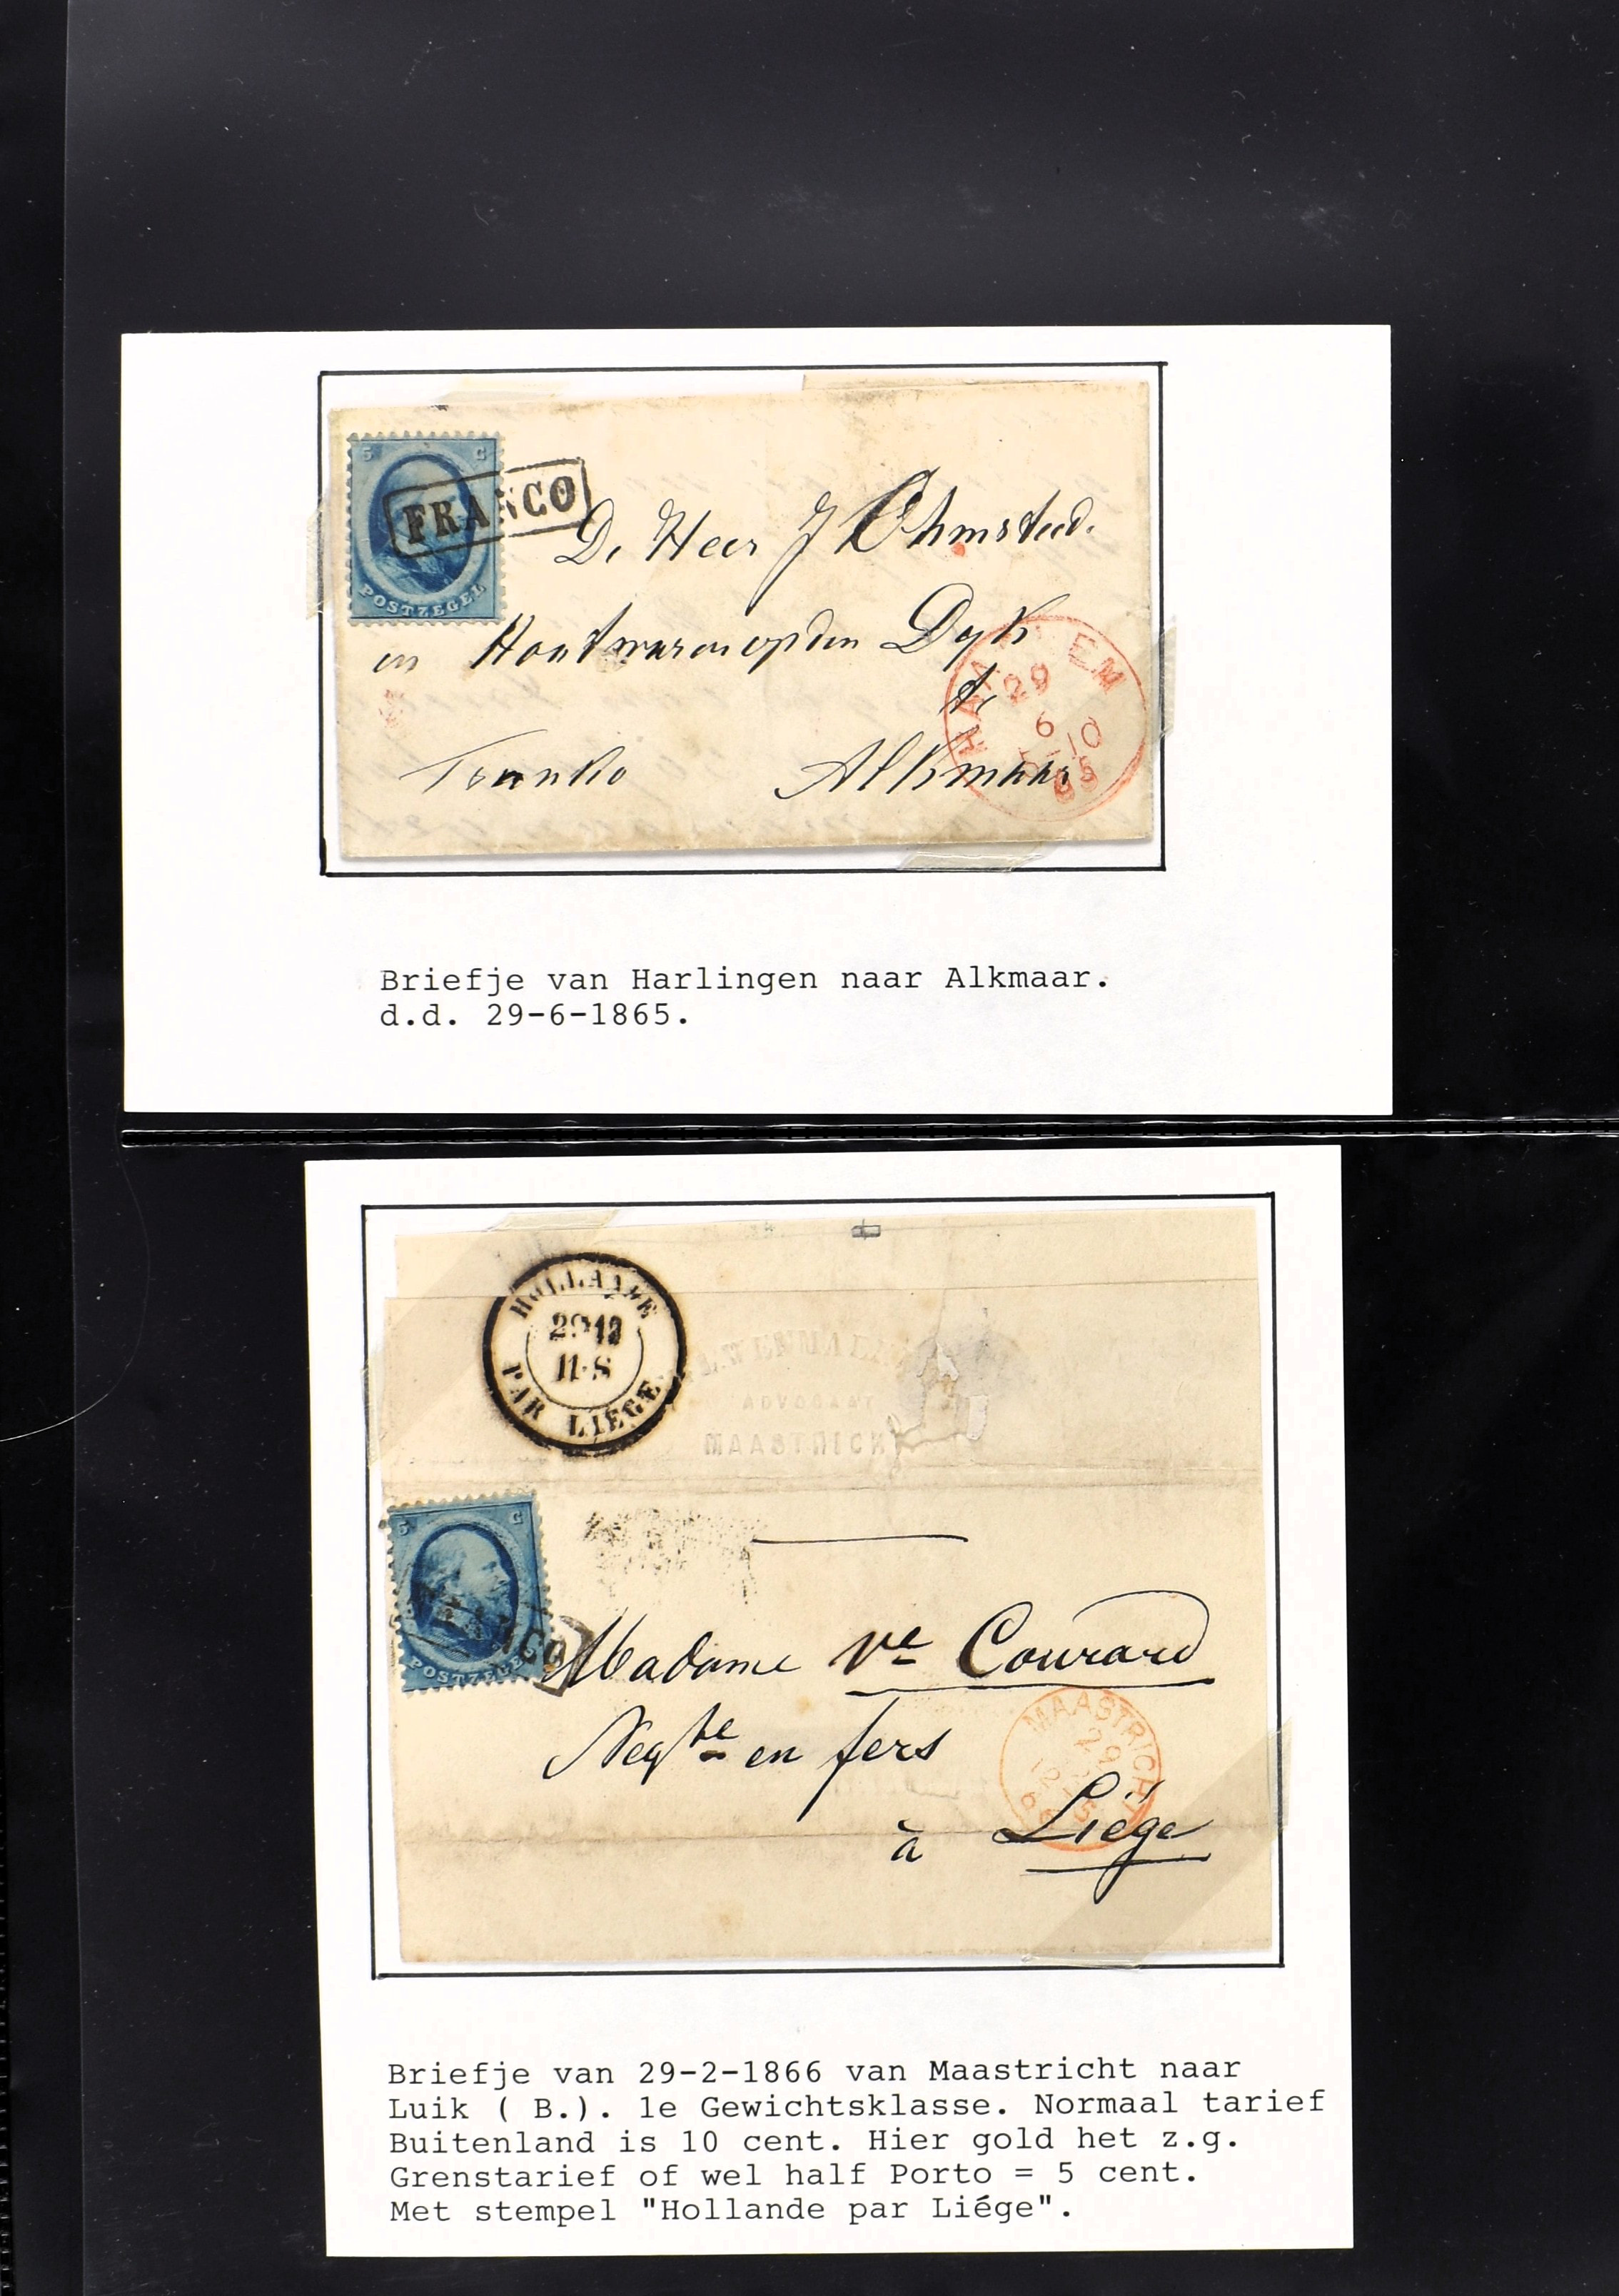 5 C
POSTZEGEL
FRANCO
De Heer J Ohmsteed.
en Houtwaren op den Dyk
te
Franko Alkmaar
HAA EM
29
6
10
65
Briefje van Harlingen naar Alkmaar.
d.d. 29-6-1865.
HOLLANDE
29 12
11-S
PAR LIÉGE
ADVOCAAT
MAASTRICH
5 C
POSTZEGEL
FRANCO
Madame Ve Courard
Negte en fers
à Liége
MAASTRICHT
29
12
Briefje van 29-2-1866 van Maastricht naar
Luik ( B.). 1e Gewichtsklasse. Normaal tarief
Buitenland is 10 cent. Hier gold het z.g.
Grenstarief of wel half Porto = 5 cent.
Met stempel "Hollande par Liége".